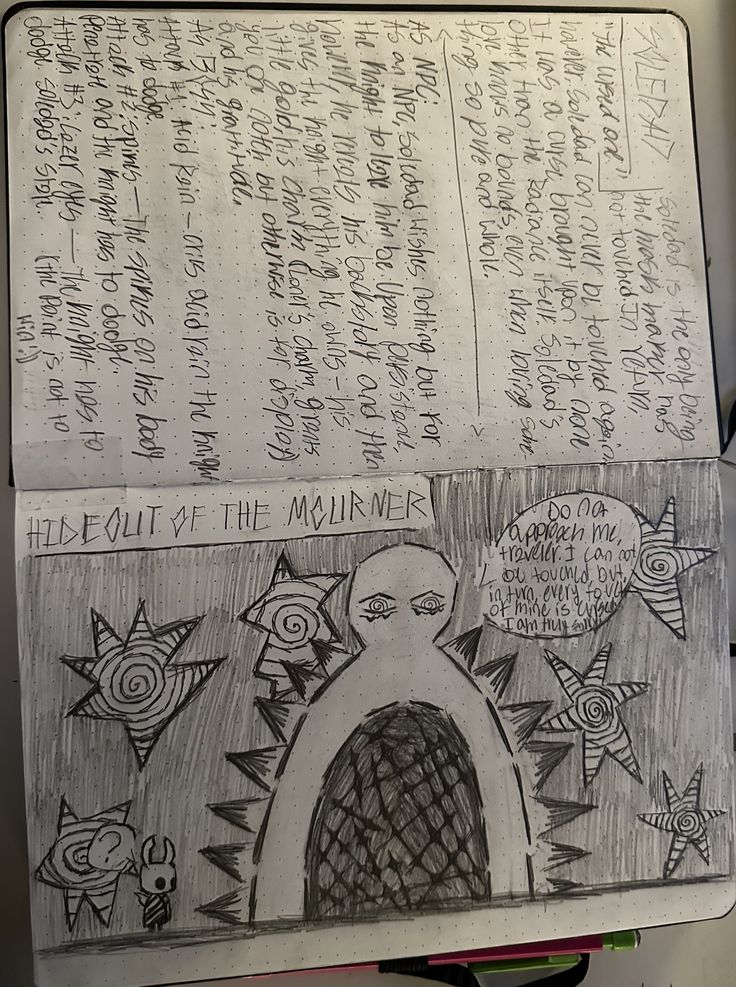 SOLEDAD
"The cursed one."
Soledad is the only being
the mask maker has
not touched. In return,
however, soledad can never be touched again
It was a curse brought upon it by none
other than the Radiance itself. Soledad's
love knows no bounds, even when loving some-
thing so pure and whole.
AS NPC:
As an NPC, soledad wishes nothing but for
the knight to leave him be. Upon persistance,
however, he reveals his backstory and then
gives the knight everything he owns — his
little gold, his charm ( charm, grants
you but otherwise is for display)
and his gratitude.
As
Attack #1: Acid Rain — cries acid rain the knight
has to dodge
Attack #2: spines — The spines on his body
penetrate and the knight has to dodge.
Attack #3: Lazer eyes — The knight has to
dodge soledad's stare. (the point is not to
HIDEOUT OF THE MOURNER
Do not
approach me,
traveler. I can not
be touched, but,
in turn, every touch
of mine is cursed.
I am truly